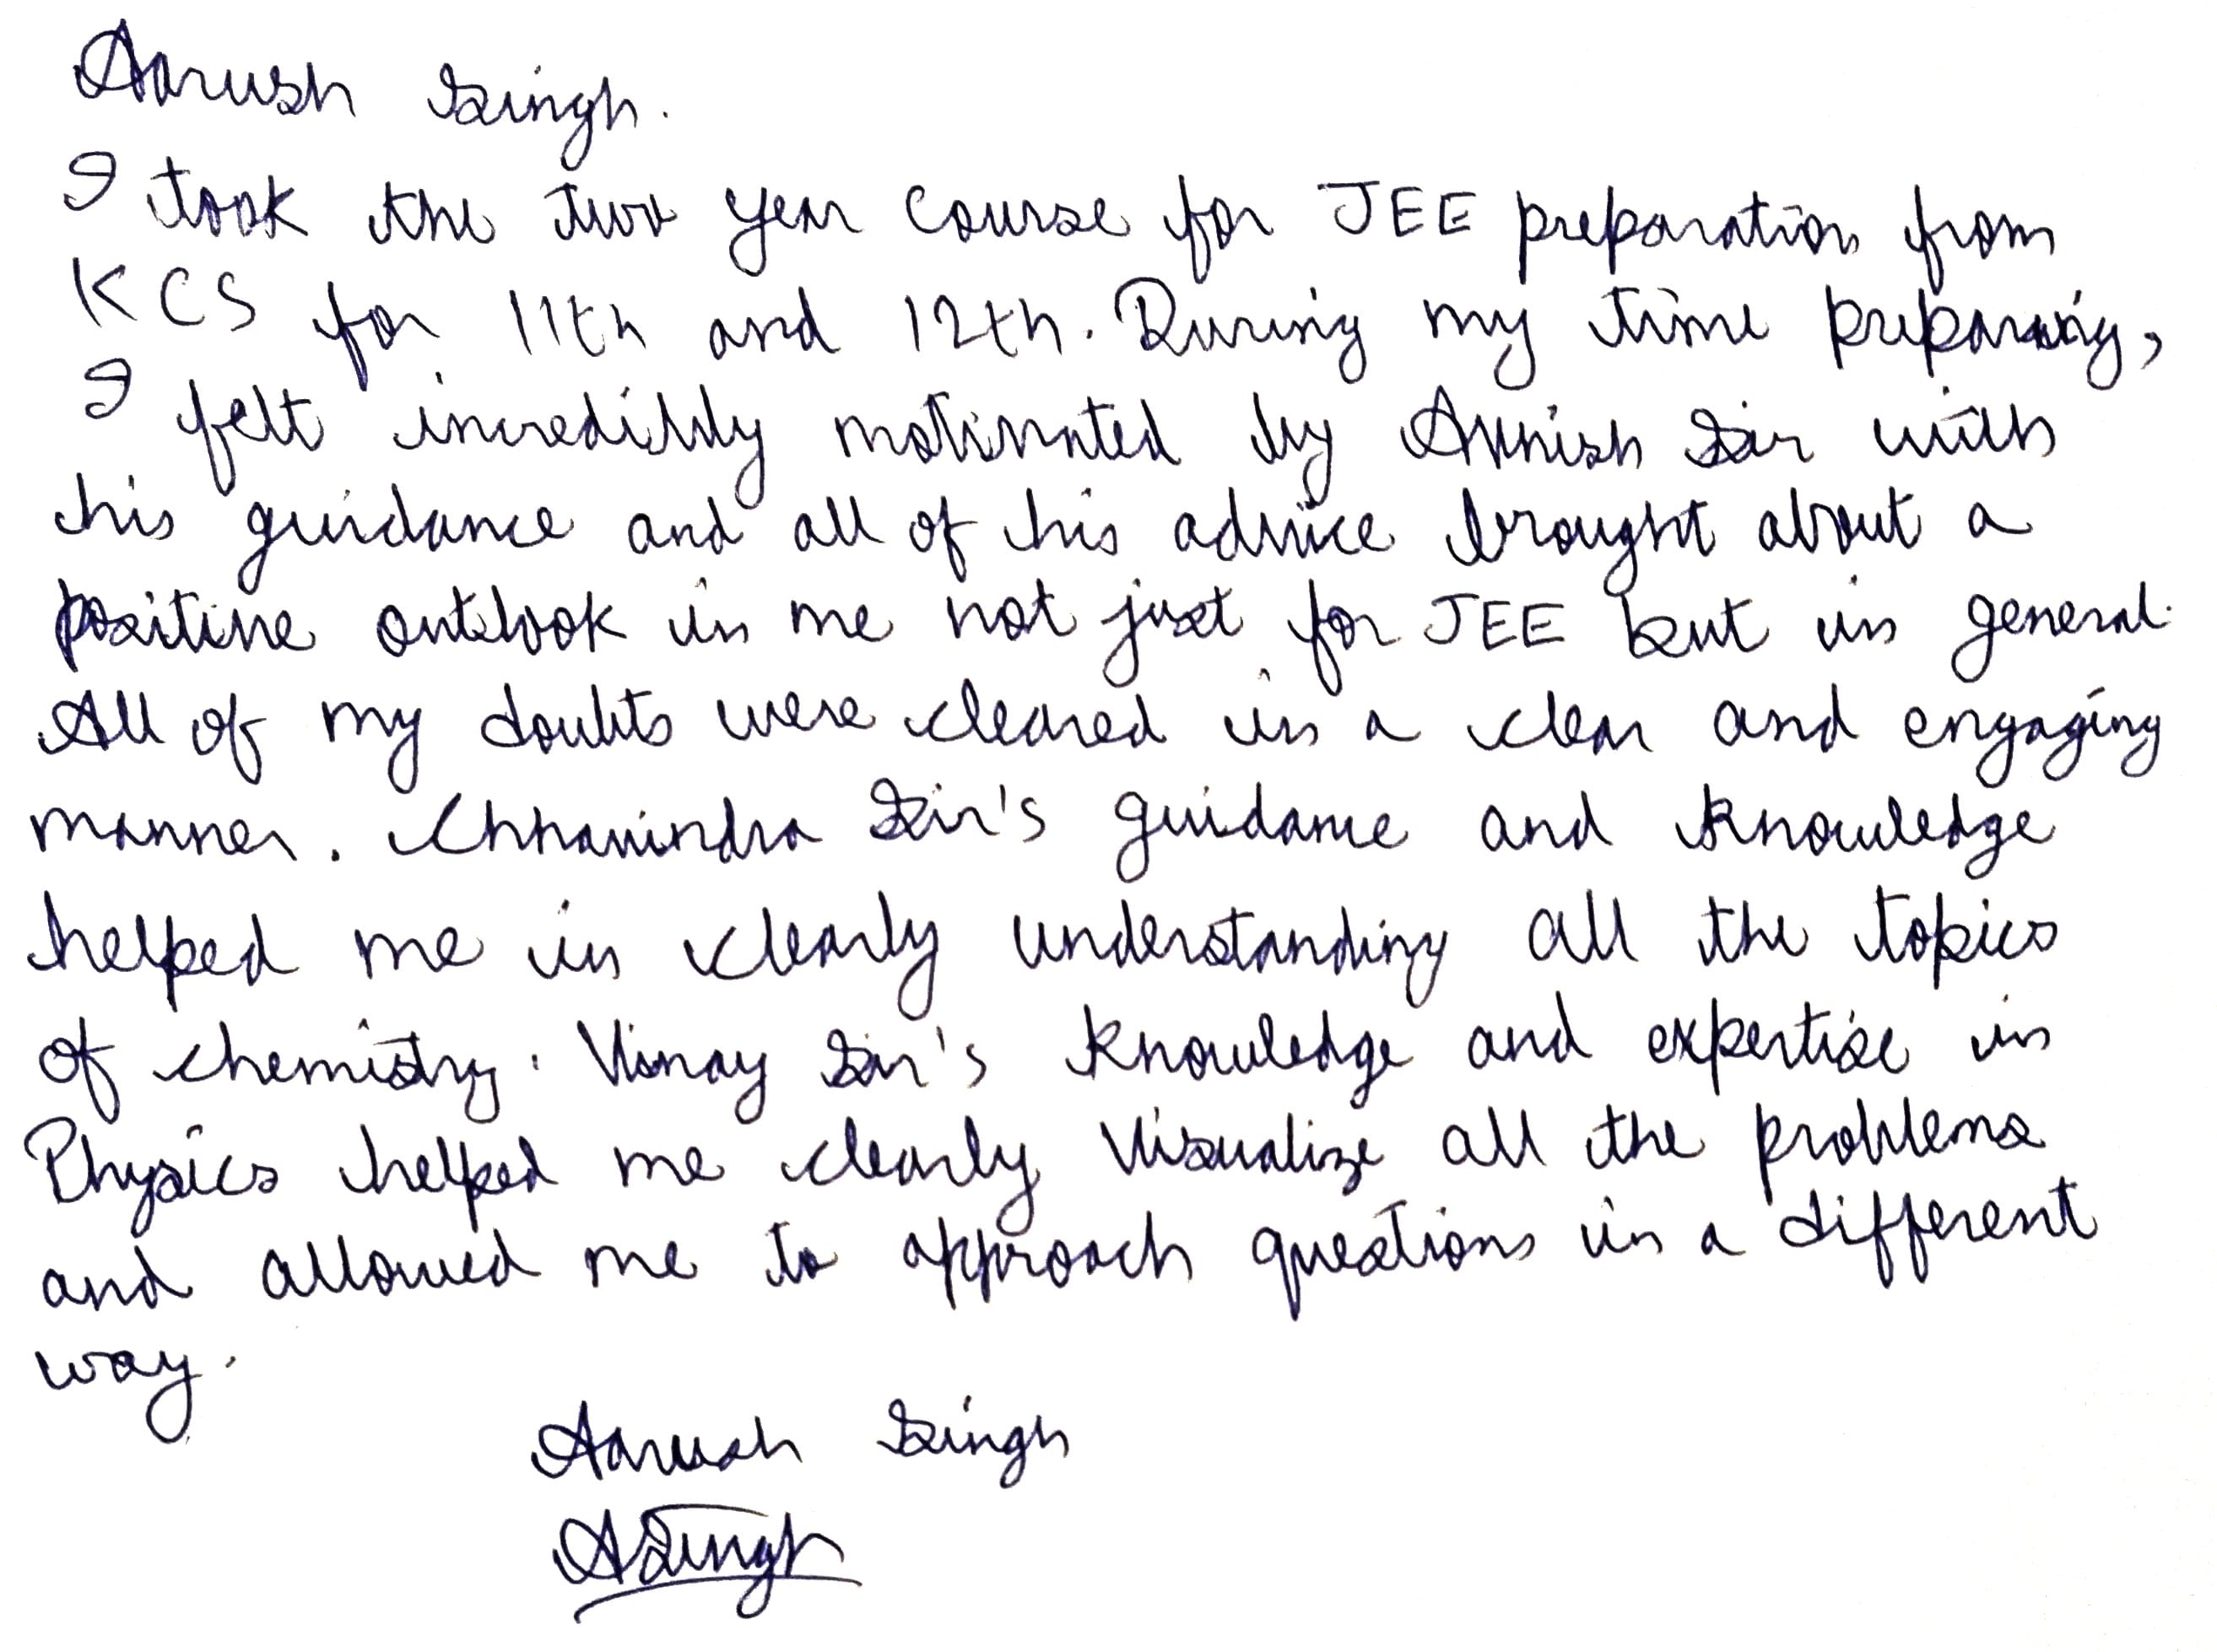 Aarush Singh.
I took the two year course for JEE preparation from
KCS for 11th and 12th. During my time preparing,
I felt incredibly motivated by Avnish Sir with
his guidance and all of his advice brought about a
positive outlook in me not just for JEE but in general.
All of my doubts were cleared in a clear and engaging
manner. Chhavindra Sir's guidance and knowledge
helped me in clearly understanding all the topics
of chemistry. Vinay Sir's knowledge and expertise in
Physics helped me clearly visualize all the problems
and allowed me to approach questions in a different
way.
Aarush Singh
ASingh